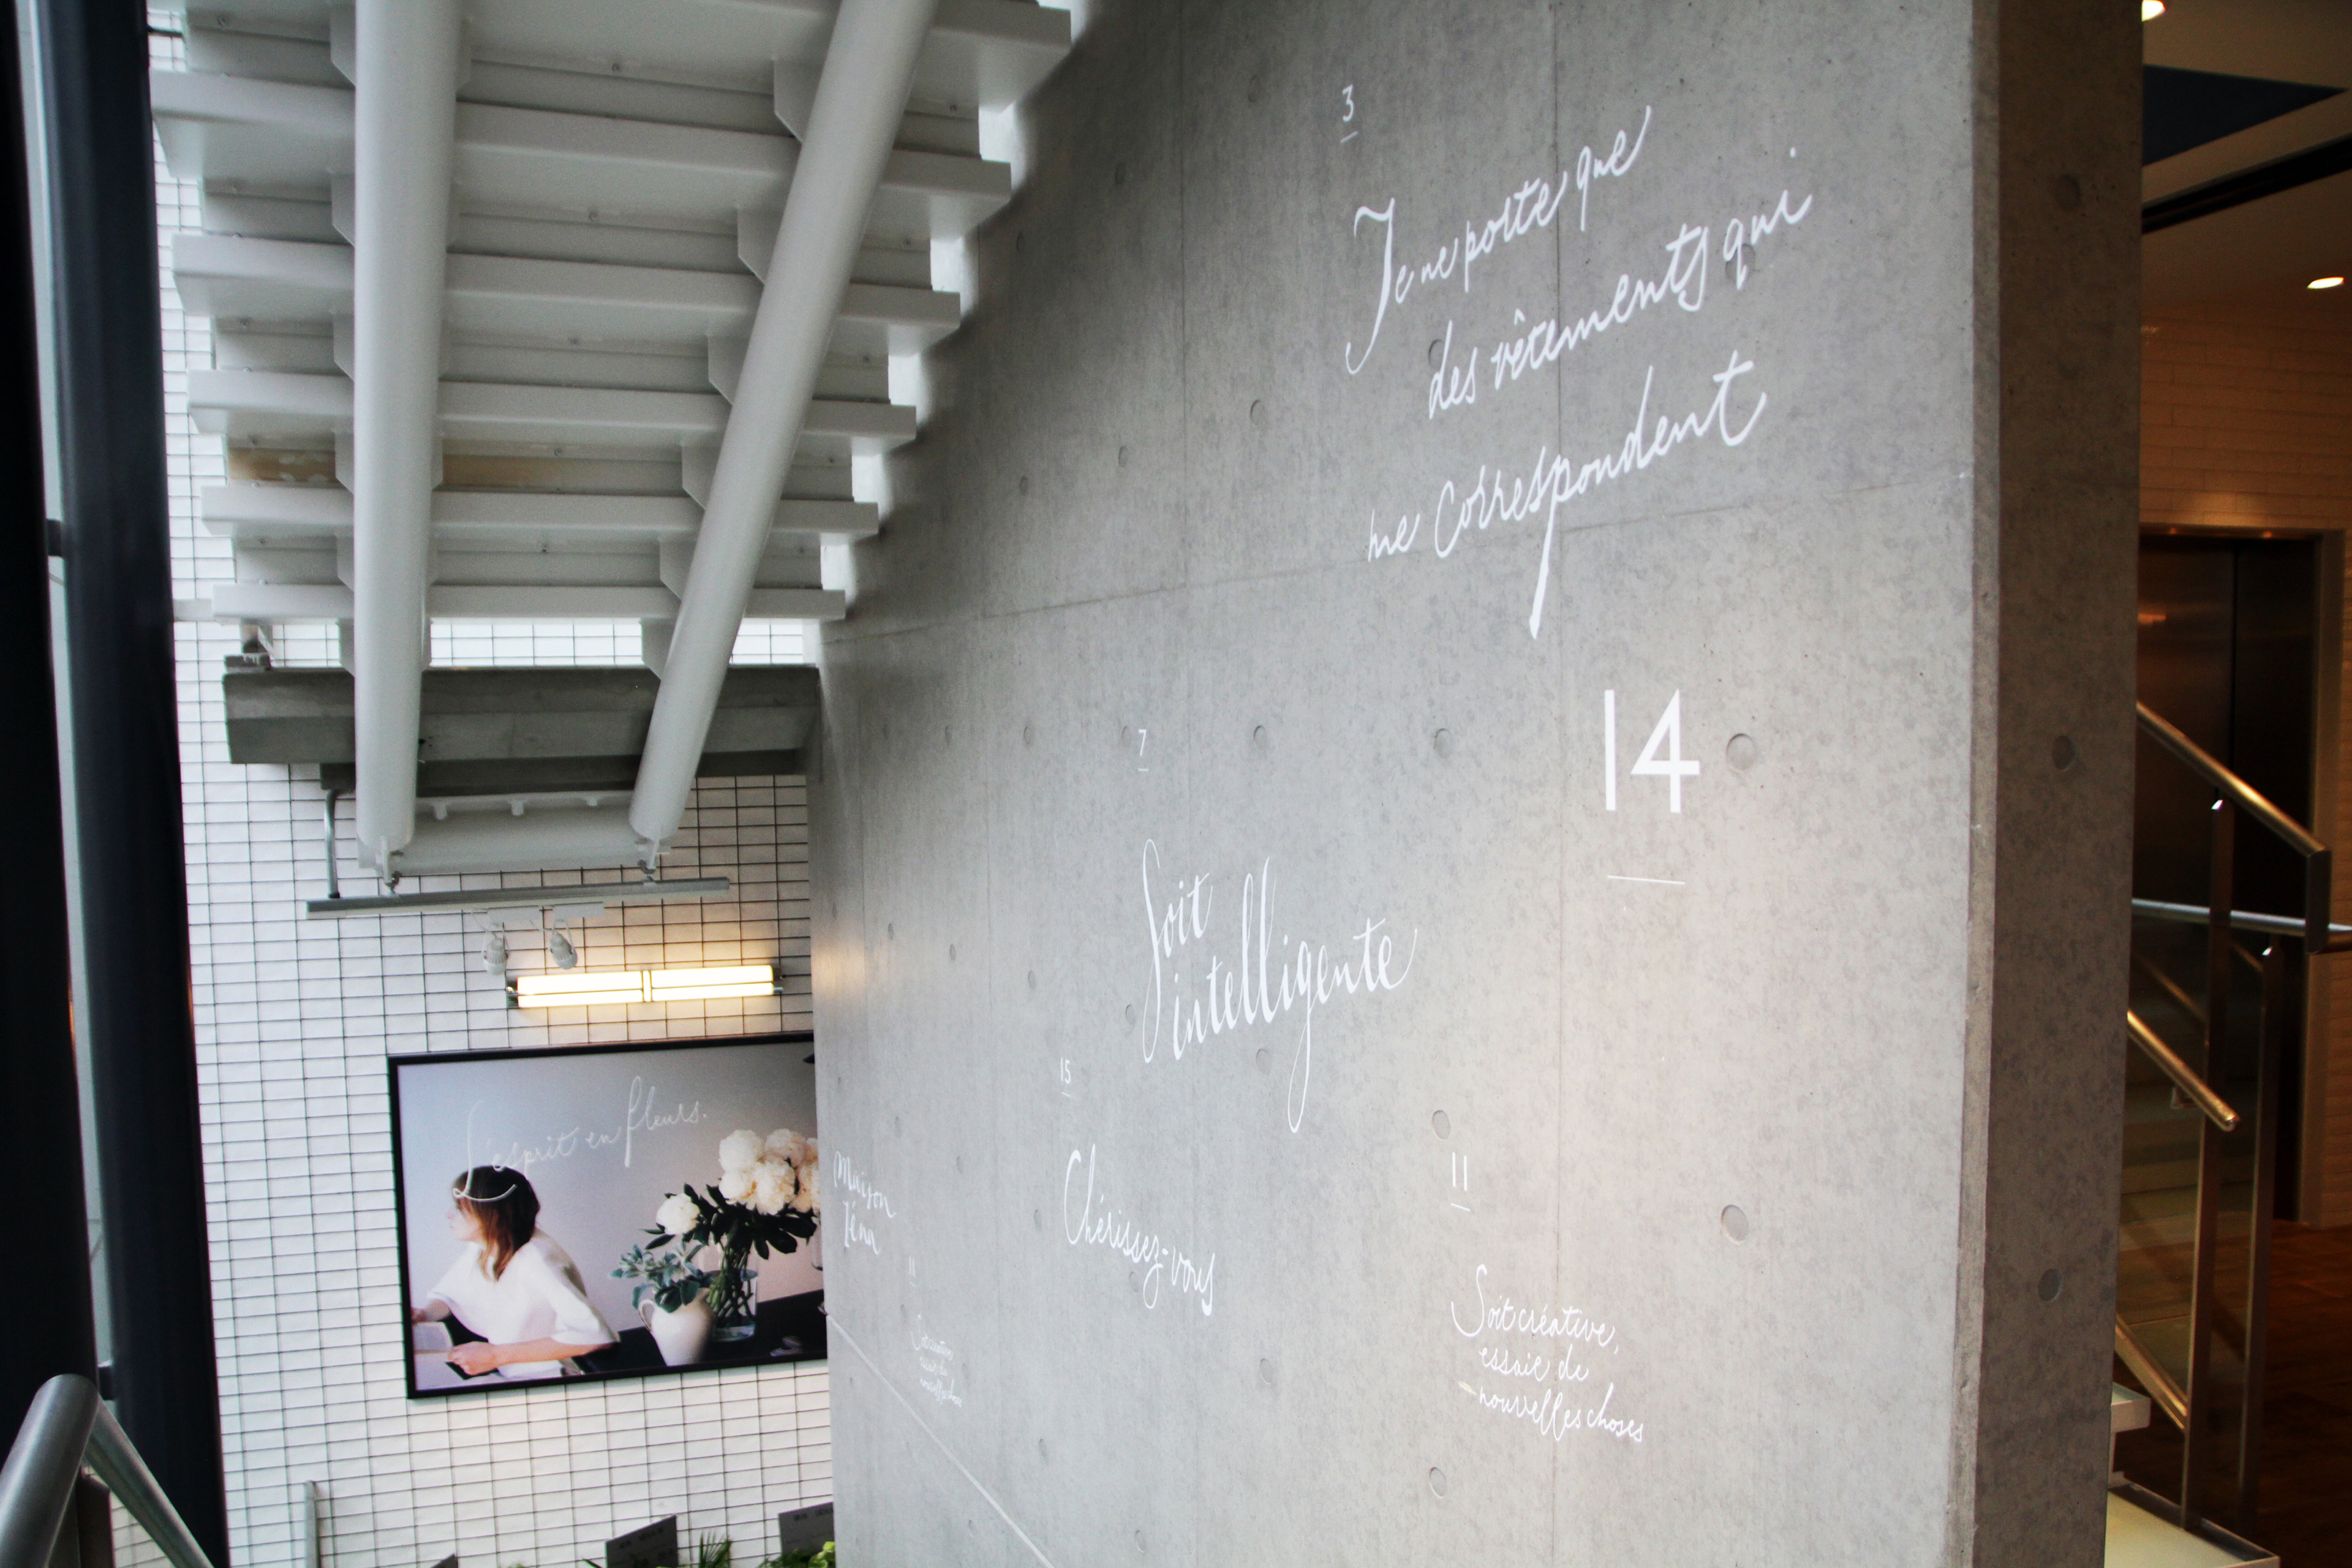 3
Je ne porte que
des vêtements qui
me correspondent
14
7
Soit
intelligente
15
Chérissez-vous
11
Soit créative,
essaie de
nouvelles choses
Maison
Iéna
11
Soit créative
essaie de
nouvelles choses
L'esprit en fleurs.